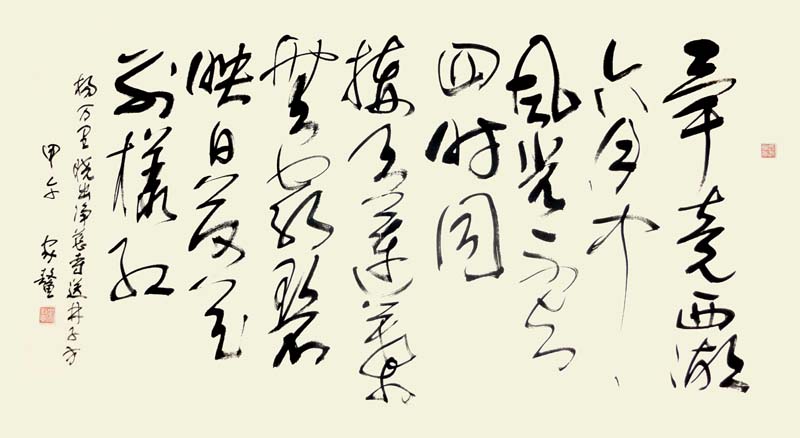 畢竟西湖
六月中
風光不与
四时同
接天蓮葉
無窮碧
映日荷花
别樣红
楊万里曉出净慈寺送林子方
甲午 家鳌